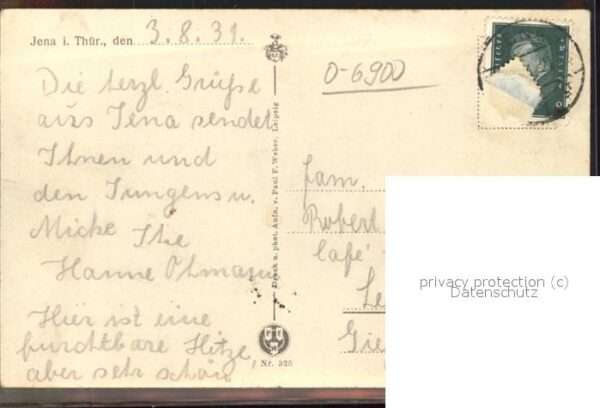 Jena i. Thür., den 3. 8. 31.
0-6900
Die herzl. Grüße
aus Jena sendet
Ihnen und
den Jungens u.
Micke Ihe
Hanne Ohmann
Hier ist eine
furchtbare Hitze
aber sehr schön
Druck u. phot. Aufn. v. Paul F. Weber, Leipzig
Nr. 325
Fam.
Robert
Café
Le
Gie
privacy protection (c)
Datenschutz